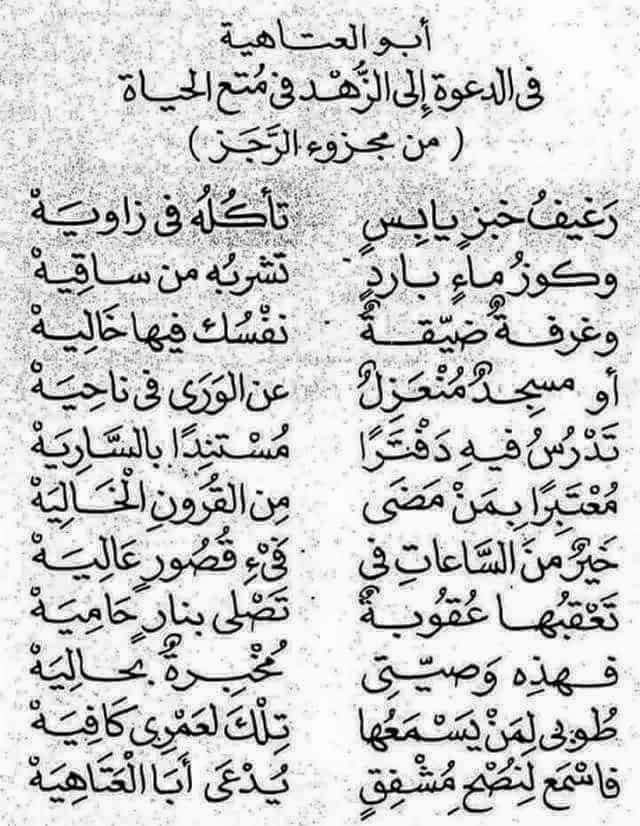 أبو العتاهية
فى الدعوة إلى الزُّهْد فى مُتع الحياة
( من مجزوء الرَّجَز )
رَغيفُ خبزٍ يابِسٍ تأكُلُه فى زاويَهْ
وكوزُ ماءٍ باردٍ تشربُه من ساقيهْ
وغرفةٌ ضيّقةٌ نفْسُك فيها خَاليهْ
أو مسجدٌ مُنْعَزِلٌ عن الوَرَى فى ناحيَهْ
تَدْرُسُ فيهِ دَفْتَرًا مُسْتَنِدًا بالسَّاريَهْ
مُعْتَبِرًا بِمَنْ مَضَى مِن القُرُونِ الْخَاليَهْ
خَيرٌ منَ السَّاعاتِ فى فَىْءِ قُصُورٍ عَاليَهْ
تَعْقبُها عُقُوبةٌ تَصْلى بنارٍ حَاميَهْ
فهذِه وَصيّتِى مُخْبِرةٌ بحاليَهْ
طُوبى لِمَنْ يَسْمَعُها تِلْكَ لَعَمْرِى كَافِيَهْ
فاسْمَع لِنُصْحِ مُشْفِقٍ يُدْعَى أَبَا الْعَتَاهِيَهْ